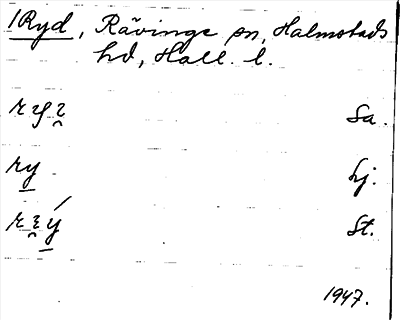 1 Ryd, Rävinge sn, Halmstads
hd, Hall. l.
Sa.
ry hj.
St.
1947.